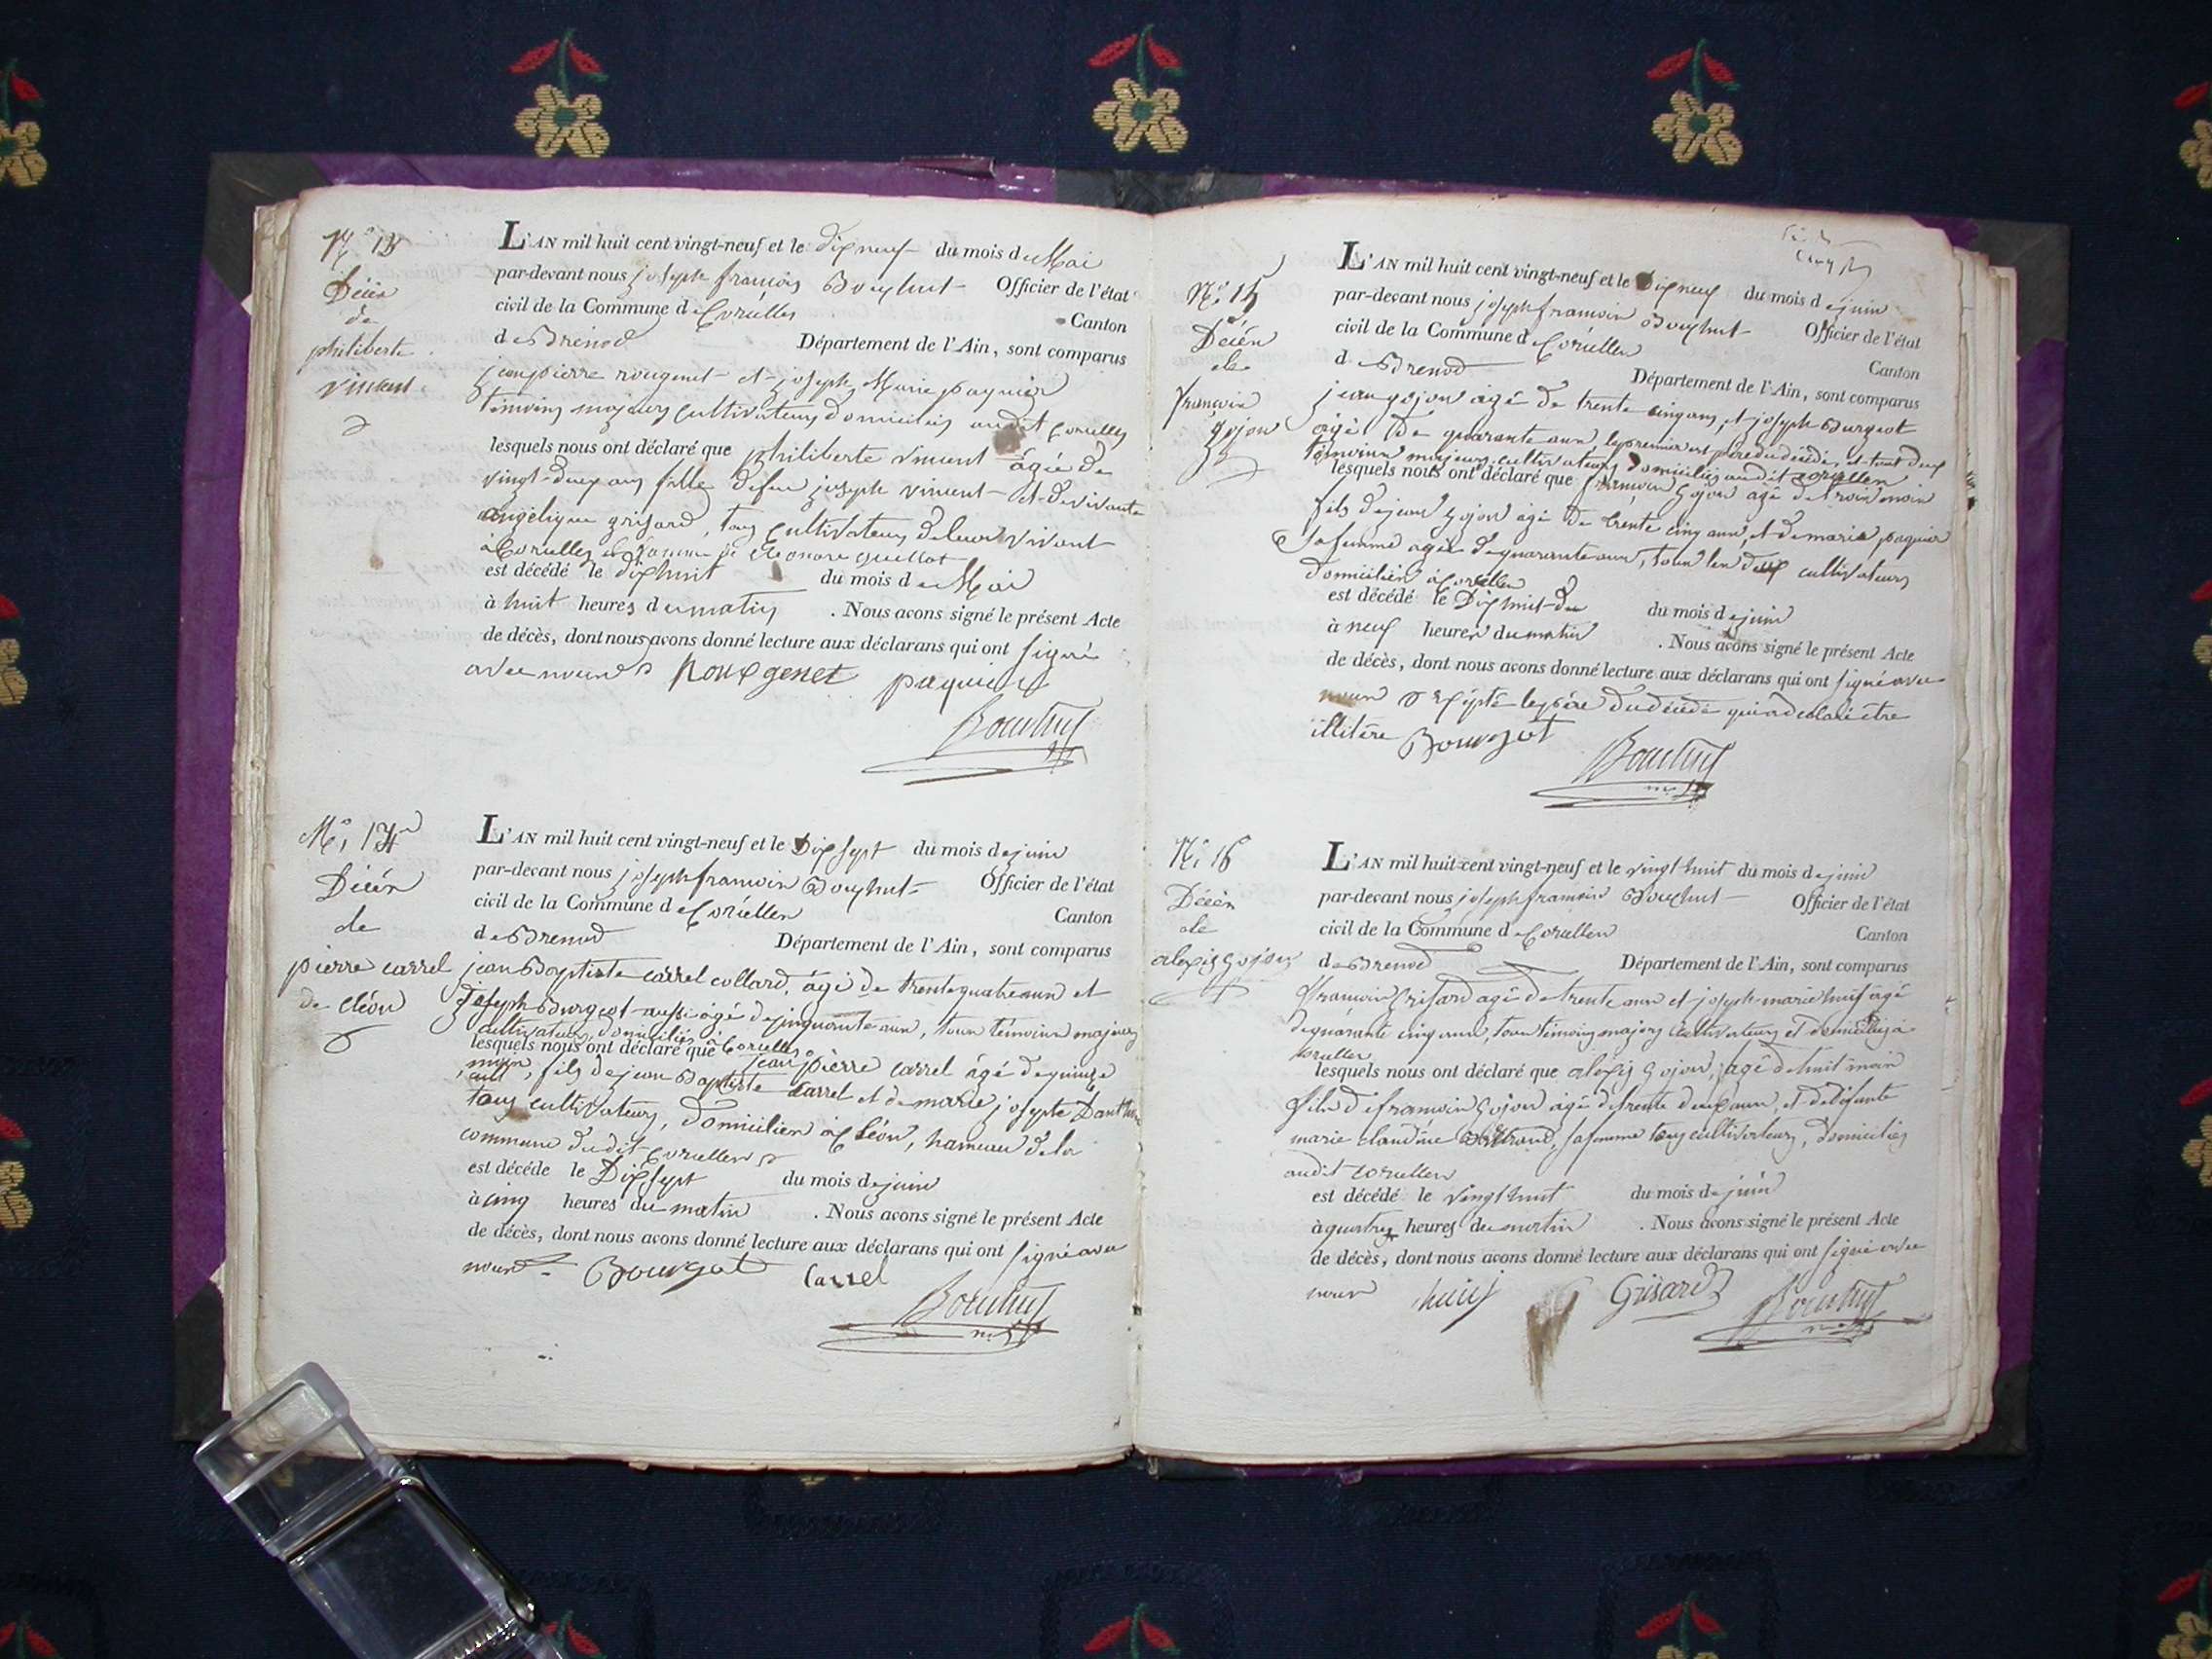 N.° 13
Décès
de
philiberte
vincent
L'AN mil huit cent vingt-neuf et le dix neuf du mois de Mai
par-devant nous joseph françois Bouchut Officier de l'état
civil de la Commune de Corcelles Canton
de Brenod Département de l'Ain, sont comparus
jean pierre rougenet et joseph Marie paquier
témoins majeurs cultivateurs domiciliés audit Corcelles
lesquels nous ont déclaré que philiberte vincent âgée de
vingt-deux ans fille de feu joseph vincent et de vivante
angélique grisard, tous cultivateurs de leur vivant
à Corcelles et femme de Eleonore guillot
est décédé le dix huit du mois de Mai
à huit heures du matin . Nous avons signé le présent Acte
de décès, dont nous avons donné lecture aux déclarans qui ont signé
avec nous Rougenet paquier
Bouchut
N.° 14
Décès
de
pierre carrel
de cléon
L'AN mil huit cent vingt-neuf et le Dix sept du mois de juin
par-devant nous joseph francois Bouchut Officier de l'état
civil de la Commune de Corcelles Canton
de Brenod Département de l'Ain, sont comparus
jean Baptiste carrel collard, âgé de trente quatre ans et
joseph Burgeot aussi âgé de cinquante ans, tous témoins majeurs
cultivateurs, domiciliés à Corcelles
lesquels nous ont déclaré que jean pierre carrel âgé de quinze
mois, fils de jean Baptiste carrel et de marie josephte
tous cultivateurs, domiciliés à Cléon, hameau de la
commune dudit Corcelles
est décédé le Dix sept du mois de juin
à cinq heures du matin . Nous avons signé le présent Acte
de décès, dont nous avons donné lecture aux déclarans qui ont signé avec
nous Bourgot Carrel
Bouchut
N.° 15
Décès
de
françois
gojon
L'AN mil huit cent vingt-neuf et le Dix neuf du mois de juin
par-devant nous joseph francois Bouchut Officier de l'état
civil de la Commune de Corcelles Canton
de Brenod Département de l'Ain, sont comparus
jean gojon âgé de trente cinq ans, et joseph Burgeot
âgé de quarante ans le premier est père du décédé, et tout deux
témoins majeurs, cultivateurs domiciliés audit corcelles
lesquels nous ont déclaré que françois gojon âgé de trois mois
fils de jean gojon âgé de trente cinq ans, et de marie paquier
sa femme agée de quarante ans, tous les deux cultivateurs
domiciliés à Corcelles
est décédé le Dix huit du du mois de juin
à neuf heures du matin . Nous avons signé le présent Acte
de décès, dont nous avons donné lecture aux déclarans qui ont signé avec
nous excepté le père du décédé qui a declaré être
illitére Bourgot
Bouchut
N.° 16
Décès
de
alexis gojon
L'AN mil huit cent vingt-neuf et le vingt huit du mois de juin
par-devant nous joseph francois Bouchut Officier de l'état
civil de la Commune de Corcelles Canton
de Brenod Département de l'Ain, sont comparus
francois Grisard agé de trente ans et joseph-marie huit âgé
de quarante cinq ans, tous témoins majeurs cultivateurs et domiciliés à
corcelles
lesquels nous ont déclaré que alexis gojon, agé de huit mois
fils de francois gojon agé de trente deux ans, et de défunte
marie claudine sa femme tous cultivateurs, domiciliés
audit corcelles
est décédé le vingt huit du mois de juin
à quatre heures du matin . Nous avons signé le présent Acte
de décès, dont nous avons donné lecture aux déclarans qui ont signé avec
nous Grisard Bouchut